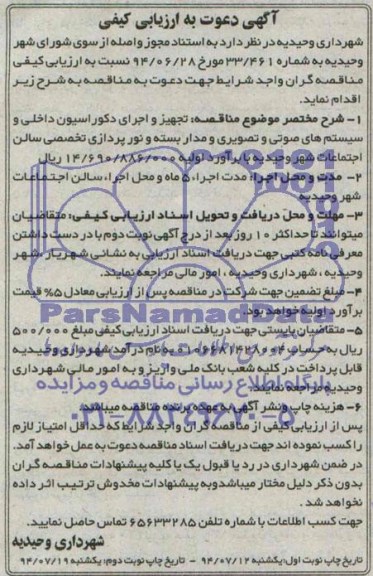 آگهی دعوت به ارزیابی کیفی
شهرداری وحیدیه در نظر دارد به استناد مجوز واصله از سوی شورای شهر
وحیدیه به شماره ۳۳/۴۶۱ مورخ ۹۴/۰۶/۲۸ نسبت به ارزیابی کیفی
مناقصه گران واجد شرایط جهت دعوت به مناقصه به شرح زیر
اقدام نماید.
۱- شرح مختصر موضوع مناقصه: تجهیز و اجرای دکوراسیون داخلی و
سیستم های صوتی و تصویری و مدار بسته و نور پردازی تخصصی سالن
اجتماعات شهر وحیدیه با برآورد اولیه ۱۴/۶۹۰/۸۸۶/۰۰۰ ریال
۲- مدت و محل اجرا: مدت اجرا، ۵ ماه و محل اجرا، سالن اجتماعات
شهر وحیدیه
۳- مهلت و محل دریافت و تحویل اسناد ارزیابی کیفی: متقاضیان
میتوانند تا حداکثر ۱۰ روز بعد از درج آگهی نوبت دوم با در دست داشتن
معرفی نامه کتبی جهت دریافت اسناد ارزیابی به نشانی شهریار، شهر
وحیدیه، شهرداری وحیدیه، امور مالی مراجعه نمایند.
۴- مبلغ تضمین جهت شرکت در مناقصه پس از ارزیابی معادل ۵% قیمت
برآورد اولیه خواهد بود.
۵- متقاضیان بایستی جهت دریافت اسناد ارزیابی کیفی مبلغ ۵۰۰/۰۰۰
ریال به حساب به نام درآمد شهرداری وحیدیه
قابل پرداخت در کلیه شعب بانک ملی واریز و به امور مالی شهرداری
وحیدیه مراجعه نمایند.
۶- هزینه چاپ و نشر آگهی به عهده برنده مناقصه میباشد.
پس از ارزیابی کیفی از مناقصه گران واجد شرایط که حداقل امتیاز لازم
را کسب نموده اند جهت دریافت اسناد مناقصه دعوت به عمل خواهد آمد.
در ضمن شهرداری در رد یا قبول یک یا کلیه پیشنهادات مناقصه گران
بدون ذکر دلیل مختار میباشد و به پیشنهادات مخدوش ترتیب اثر داده
نخواهد شد.
جهت کسب اطلاعات با شماره تلفن ۶۵۶۳۳۲۸۵ تماس حاصل نمایید.
شهرداری وحیدیه
تاریخ چاپ نوبت اول: یکشنبه ۹۴/۰۷/۱۲ - تاریخ چاپ نوبت دوم: یکشنبه ۹۴/۰۷/۱۹
ParsNamadData
پایگاه اطلاع رسانی مناقصه و مزایده
۰۲۱-۸۸۳۴۹۶۷۰-۵